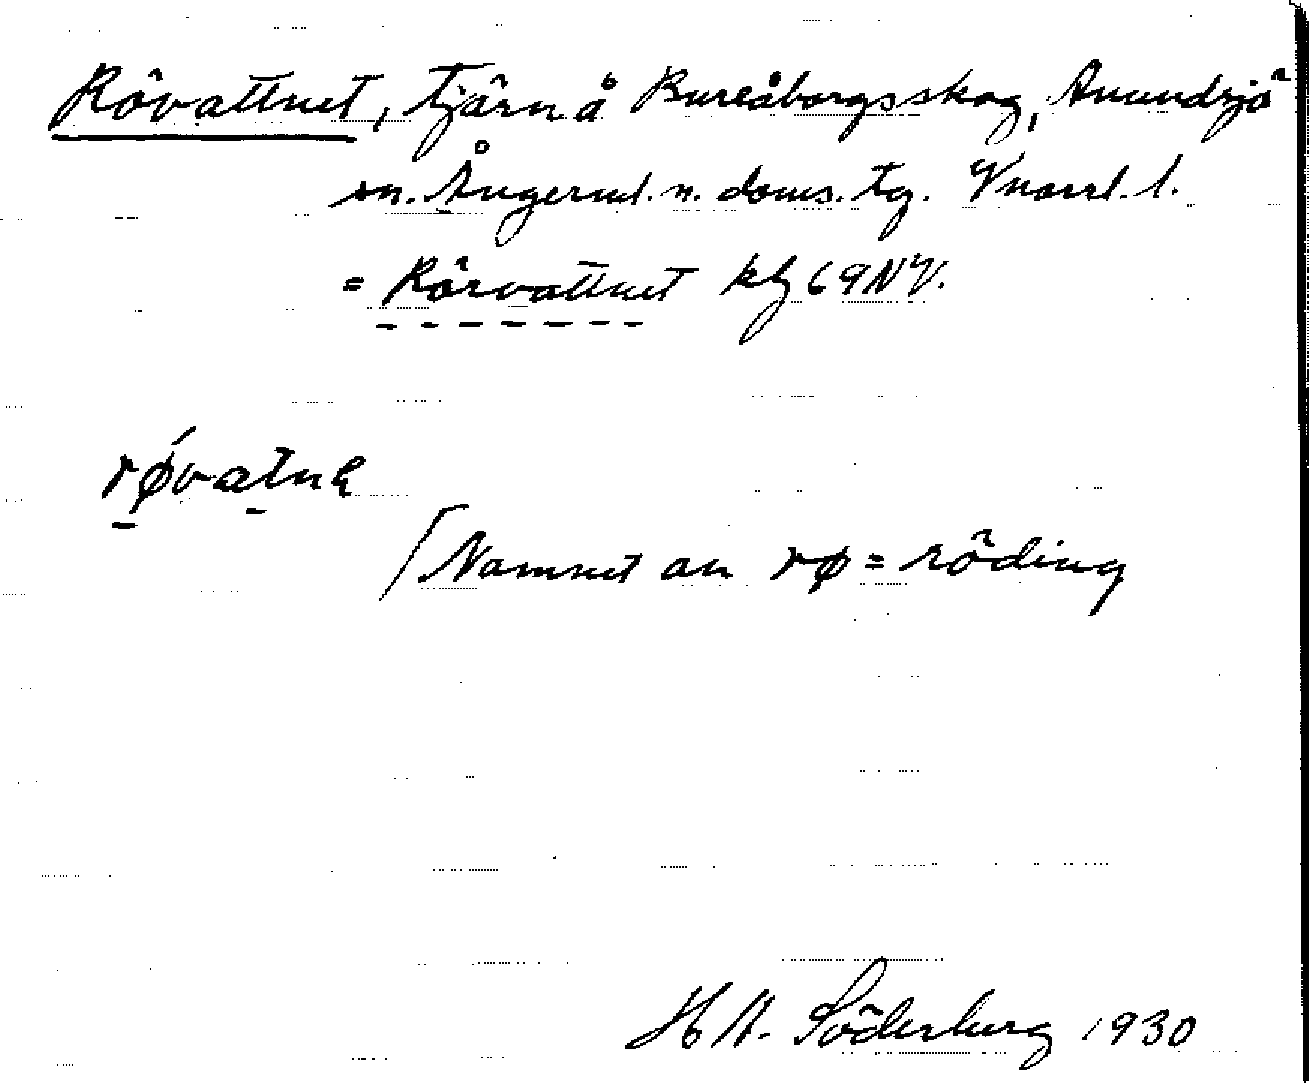 Rövattnet, tjärn å Bureåborgsskog, Anundsjö
sn. Ångerml. n. doms. tg. Vnorrl. l.
= Rörvattnet kbl 69NV.
røvatnə
/Namnet av rø = röding
H A. Söderberg 1930